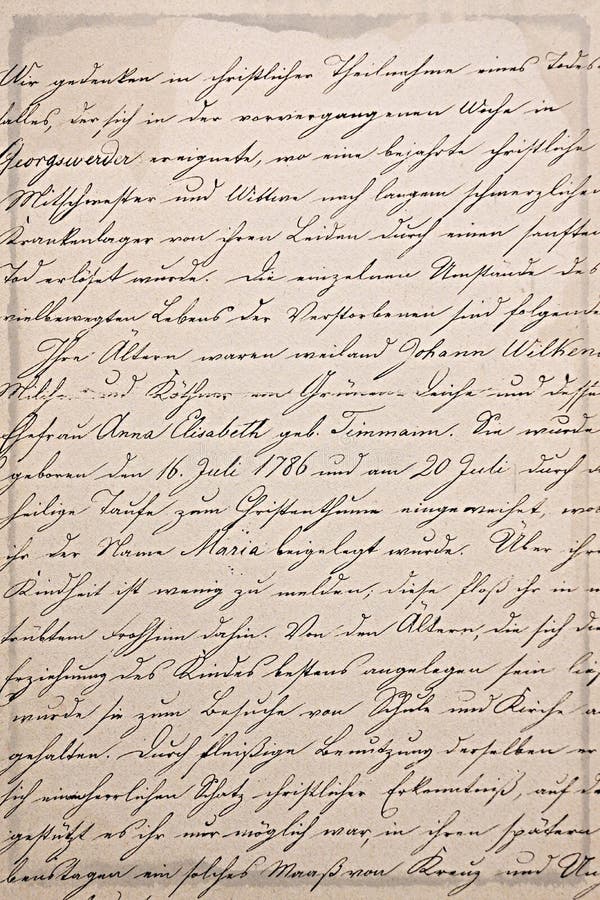 Wir gedenken in christlicher Theilnahme eines Todes
falles, der sich in der vorvergangenen Woche in
Georgswerder ereignete, wo eine bejahrte christliche
Mitschwester und Wittwe nach langem schmerzlichen
Krankenlager von ihren Leiden durch einen sanften
Tod erlöset wurde. Die einzelnen Umstände des
vielbewegten Lebens der Verstorbenen sind folgende
Ihre Ältern waren weiland Johann Wilken
Milch- und Köthner am Grünen Deiche und dessen
Ehefrau Anna Elisabeth geb. Timmann. Sie wurde
geboren den 16. Juli 1786 und am 20 Juli durch d
heilige Taufe zum Christenthume eingeweihet, wo
ihr der Name Maria beigelegt wurde. Über ihre
Kindheit ist wenig zu melden; diese floß ihr in
trübtem Frohsinn dahin. Von den Ältern, die sich die
Erziehung des Kindes bestens angelegen sein ließ
wurde sie zum Besuche von Schule und Kirche a
gehalten. Durch fleißige Benutzung derselben er
sich einen herrlichen Schatz christlicher Erkenntniß, auf de
gestützt es ihr nur möglich war, in ihren spätern
benstagen ein solches Maaß von Kreuz und Un